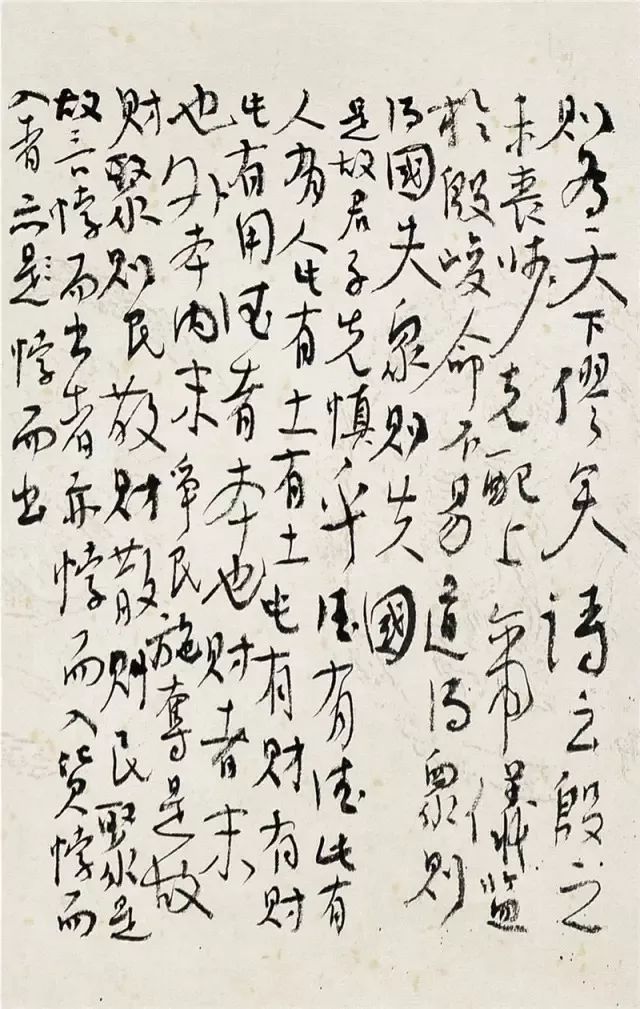 則為天下僇矣詩云殷之
未喪師克配上帝儀監
於殷峻命不易道得眾則
得國失眾則失國
是故君子先慎乎德有德此有
人有人此有土有土此有財有財
此有用德者本也財者末
也外本內末爭民施奪是故
財聚則民散財散則民聚是
故言悖而出者亦悖而入貨悖而
入者亦是悖而出